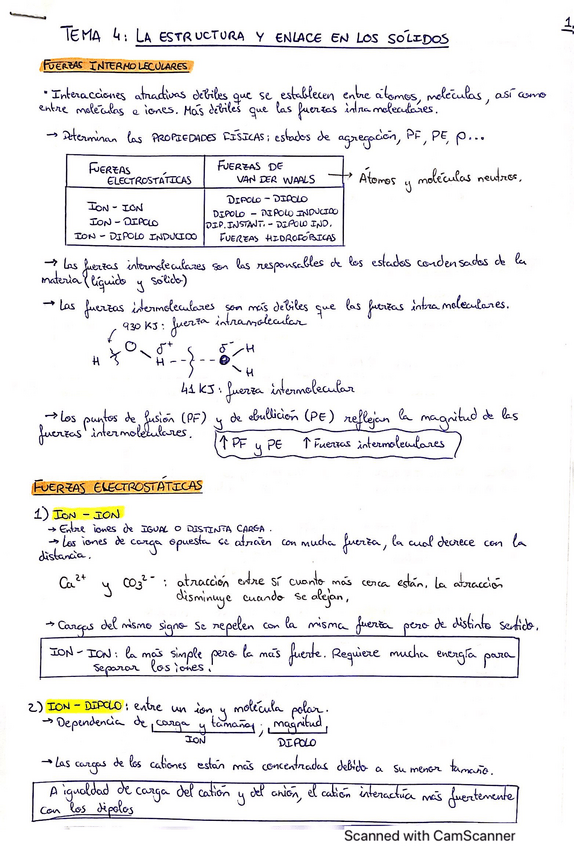 1.
TEMA 4: LA ESTRUCTURA Y ENLACE EN LOS SÓLIDOS
FUERZAS INTERMOLECULARES
· Interacciones atractivas débiles que se establecen entre átomos, moléculas, así como
entre moléculas e iones. Más débiles que las fuerzas intramoleculares.
→ Determinan las PROPIEDADES FÍSICAS: estados de agregación, PF, PE, ρ...
FUERZAS ELECTROSTÁTICAS
FUERZAS DE VAN DER WAALS → Átomos y moléculas neutros.
ION - ION
ION - DIPOLO
ION - DIPOLO INDUCIDO
DIPOLO - DIPOLO
DIPOLO - DIPOLO INDUCIDO
DIP. INSTANT. - DIPOLO IND.
FUERZAS HIDROFÓBICAS
→ Las fuerzas intermoleculares son las responsables de los estados condensados de la
materia (líquido y sólido)
→ Las fuerzas intermoleculares son más débiles que las fuerzas intramoleculares.
930 KJ: fuerza intramolecular
H O δ+ H δ- O H
H
41 KJ: fuerza intermolecular
→ Los puntos de fusión (PF) y de ebullición (PE) reflejan la magnitud de las
fuerzas intermoleculares.
↑ PF y PE ↑ Fuerzas intermoleculares
FUERZAS ELECTROSTÁTICAS
1) ION - ION
→ Entre iones de IGUAL O DISTINTA CARGA.
→ Los iones de carga opuesta se atraen con mucha fuerza, la cual decrece con la
distancia.
Ca²⁺ y CO₃²⁻ : atracción entre sí cuanto más cerca están. La atracción
disminuye cuando se alejan.
→ Cargas del mismo signo se repelen con la misma fuerza pero de distinto sentido.
ION - ION: la más simple pero la más fuerte. Requiere mucha energía para
separar los iones.
2) ION - DIPOLO: entre un ion y molécula polar.
→ Dependencia de carga y tamaño; magnitud
ION DIPOLO
→ Las cargas de los cationes están más concentradas debido a su menor tamaño.
A igualdad de carga del catión y del anión, el catión interactúa más fuertemente
con los dipolos
Scanned with CamScanner